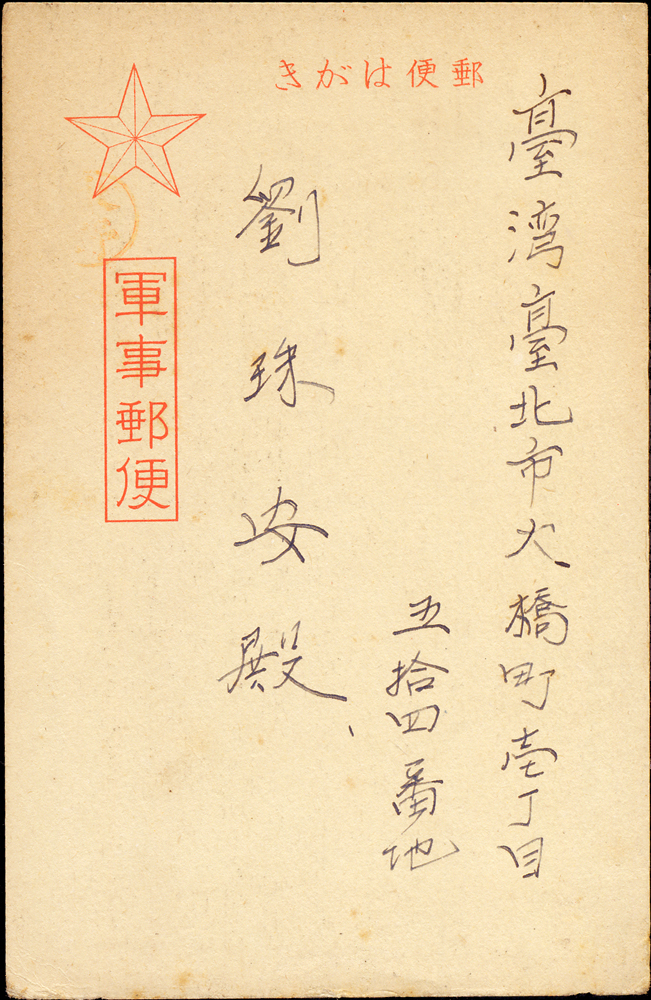 郵便はがき
臺湾臺北市大橋町壱丁目
五拾四番地
劉珠安殿
軍事郵便